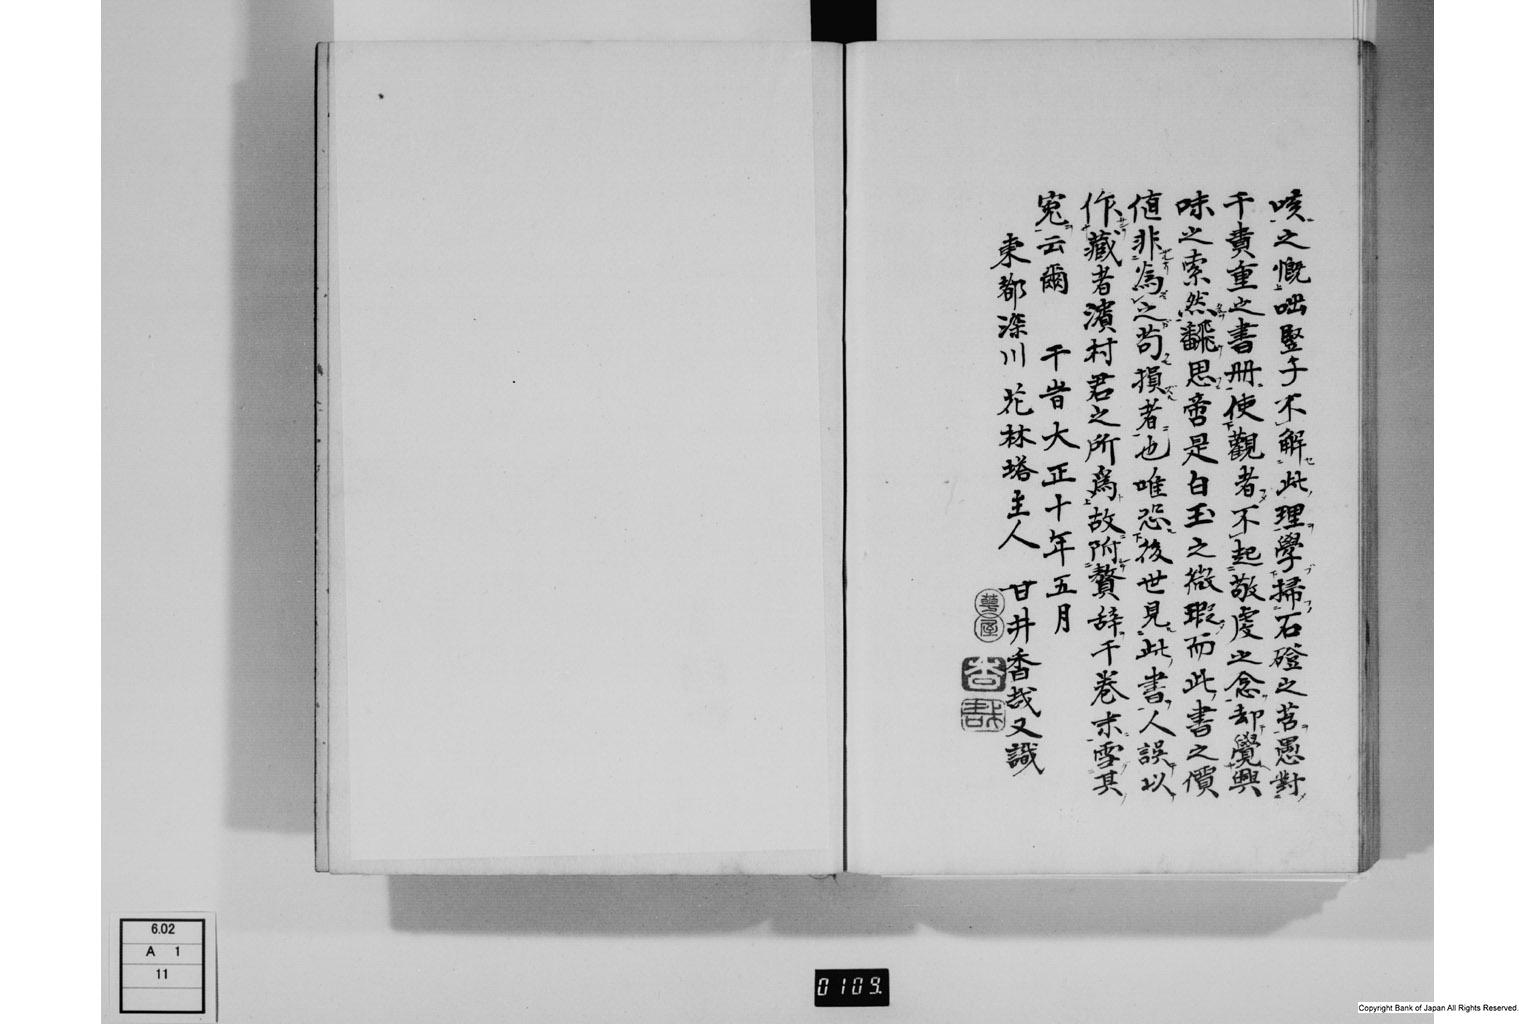 咳之慨咄豎子不解此理學掃石磴之苔愚對
干貴重之書冊使觀者不起敬虔之念却覺興
味之索然飜思啻是白玉之微瑕而此書之價
値非爲之苟損者也唯恐後世見此書人誤以
作藏者濱村君之所爲故附贅辞干卷末雪其
寃云爾 干旹大正十年五月
東都深川花林塔主人 甘井香哉又識
夢
屋
香
哉
6.02
A 1
11
0109.
Copyright Bank of Japan All Rights Reserved.